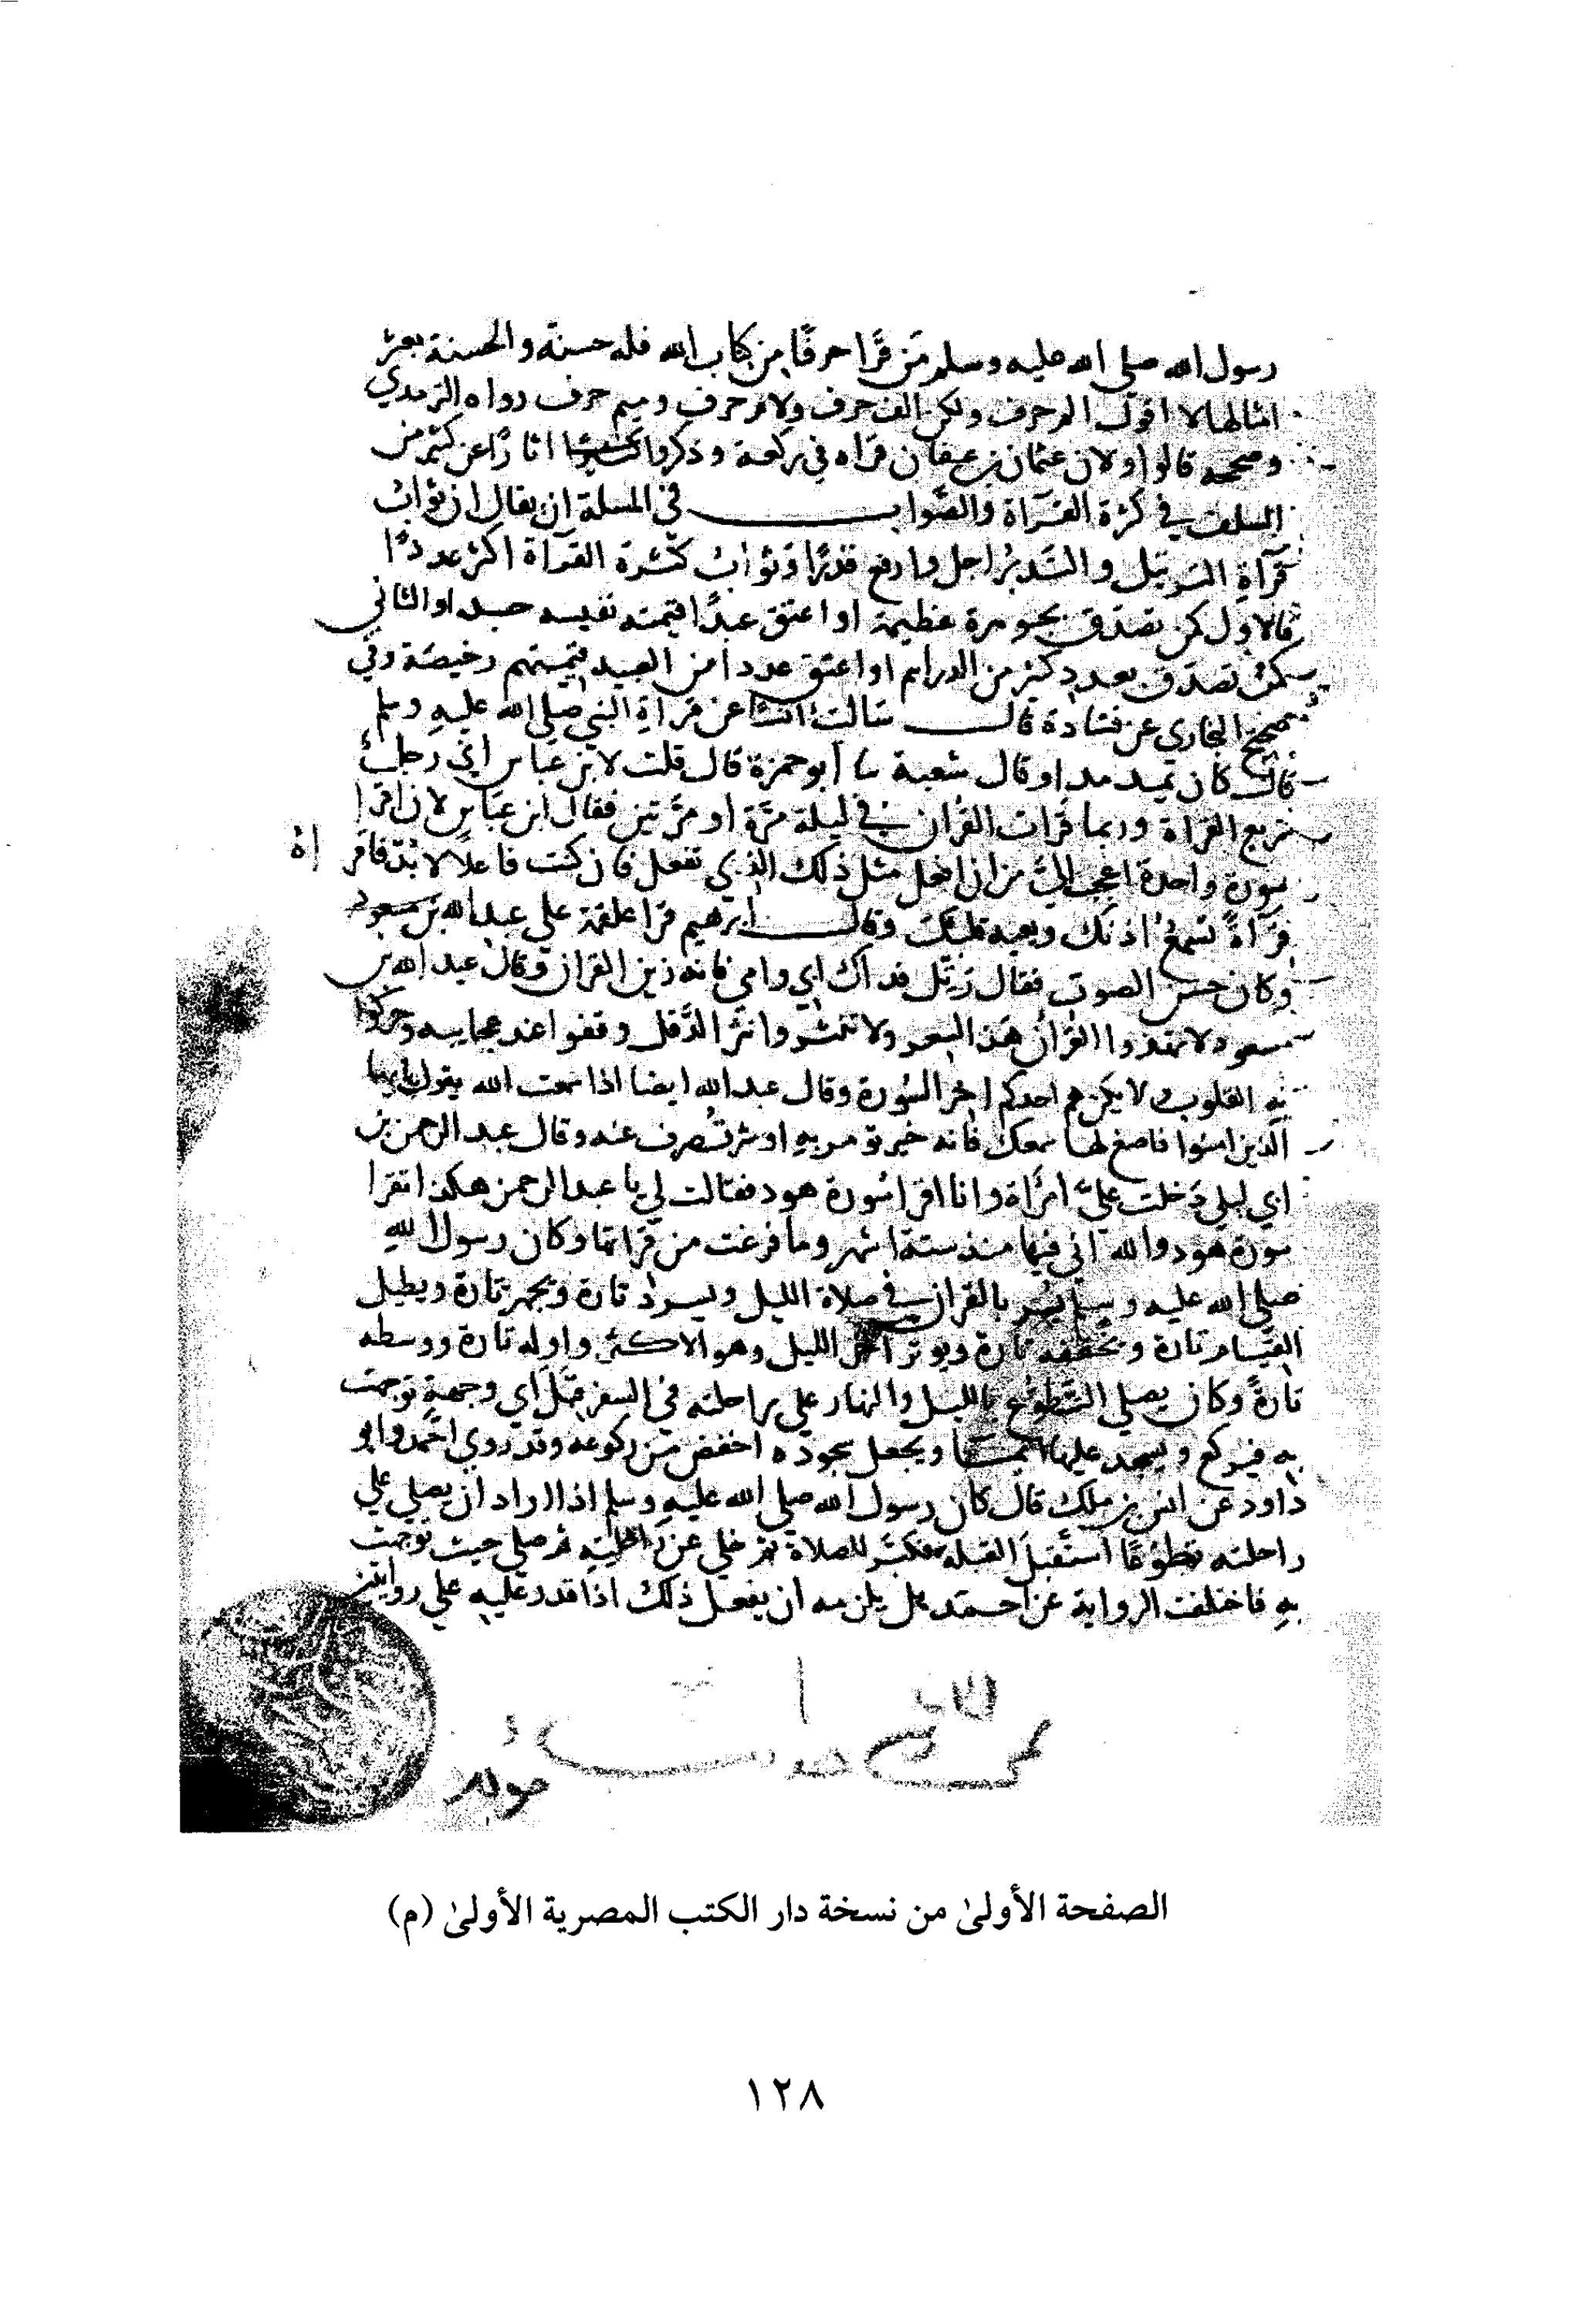 رسول الله صلي الله عليه وسلم من قرا حرفا من كتاب الله فله حسنة والحسنة بعشر
امثالها لا اقول الم حرف ولكن الف حرف ولام حرف وميم حرف رواه الترمذي
وصححه قالوا ولان عثمان بن عفان قراه في ركعة وذكروا اثارا عن كثير من
السلف في كثرة القرآة والصواب في المسلة ان يقال ان ثواب
قرآة الترتيل والتدبر اجل وارفع قدرا وثواب كثرة القرآة اكثر عددا
فالاول كمن تصدق بجوهرة عظيمة او اعتق عبدا قيمته نفيسه جدا والثاني
كمن تصدق بعدد كثير من الدراهم او اعتق عددا من العبيد قيمتهم رخيصة وفي
صحيح البخاري عن قتادة قال سالت انسا عن قراة النبي صلي الله عليه وسلم
فقال كان يمد مدا وقال شعبة ثنا أبو حمزة قال قلت لابن عباس اني رجل
سريع القراة وربما قرات القران في ليلة مرة او مرتين فقال ابن عباس لان اقرا
سورة واحدة اعجب الي من ان افعل مثل ذلك الذي تفعل فان كنت فاعلا لا بد فاقر اه
قرآة تسمع اذنك ويعيه قلبك وقال ابرهيم قرا علقمة علي عبد الله بن مسعود
وكان حسن الصوت فقال رتل فداك ابي وامي فانه زين القران وقال عبد الله بن
مسعود لا تهذوا القران هذ الشعر ولا تنثروا نثر الدقل وقفوا عند عجايبه وحركوا
به القلوب ولا يكن هم احدكم اخر السورة وقال عبد الله ايضا اذا سمعت الله يقول يايها
الذين امنوا فاصغ لها سمعك فانه خير تومر به او شر تصرف عنه وقال عبد الرحمن بن
ابي ليلي دخلت علي امراة وانا اقرا سورة هود فقالت لي يا عبد الرحمن هكذا تقرا
سورة هود والله اني فيها منذ ستة اشهر وما فرغت من قراتها وكان رسول الله
صلي الله عليه وسلم يسر بالقران في صلاة الليل تارة ويجهر تارة ويطيل
القيام تارة ويخففه تارة ويوتر اخر الليل وهو الاكثر واوله تارة ووسطه
تارة وكان يصلي التطوع بالليل والنهار علي راحلته في السفر قبل اي وجهة توجهت
به فيركع ويسجد عليها ويجعل سجوده اخفض من ركوعه وقد روي احمد وابو
داود عن انس بن ملك قال كان رسول الله صلي الله عليه وسلم اذا اراد ان يصلي علي
راحلته تطوعا استقبل القبلة فكبر للصلاة ثم خلي عن راحلته ثم صلي حيث توجهت
به فاختلفت الرواية عن احمد هل يلزمه ان يفعل ذلك اذا قدر عليه علي روايتين
الصفحة الأولىٰ من نسخة دار الكتب المصرية الأولىٰ (م)
١٢٨